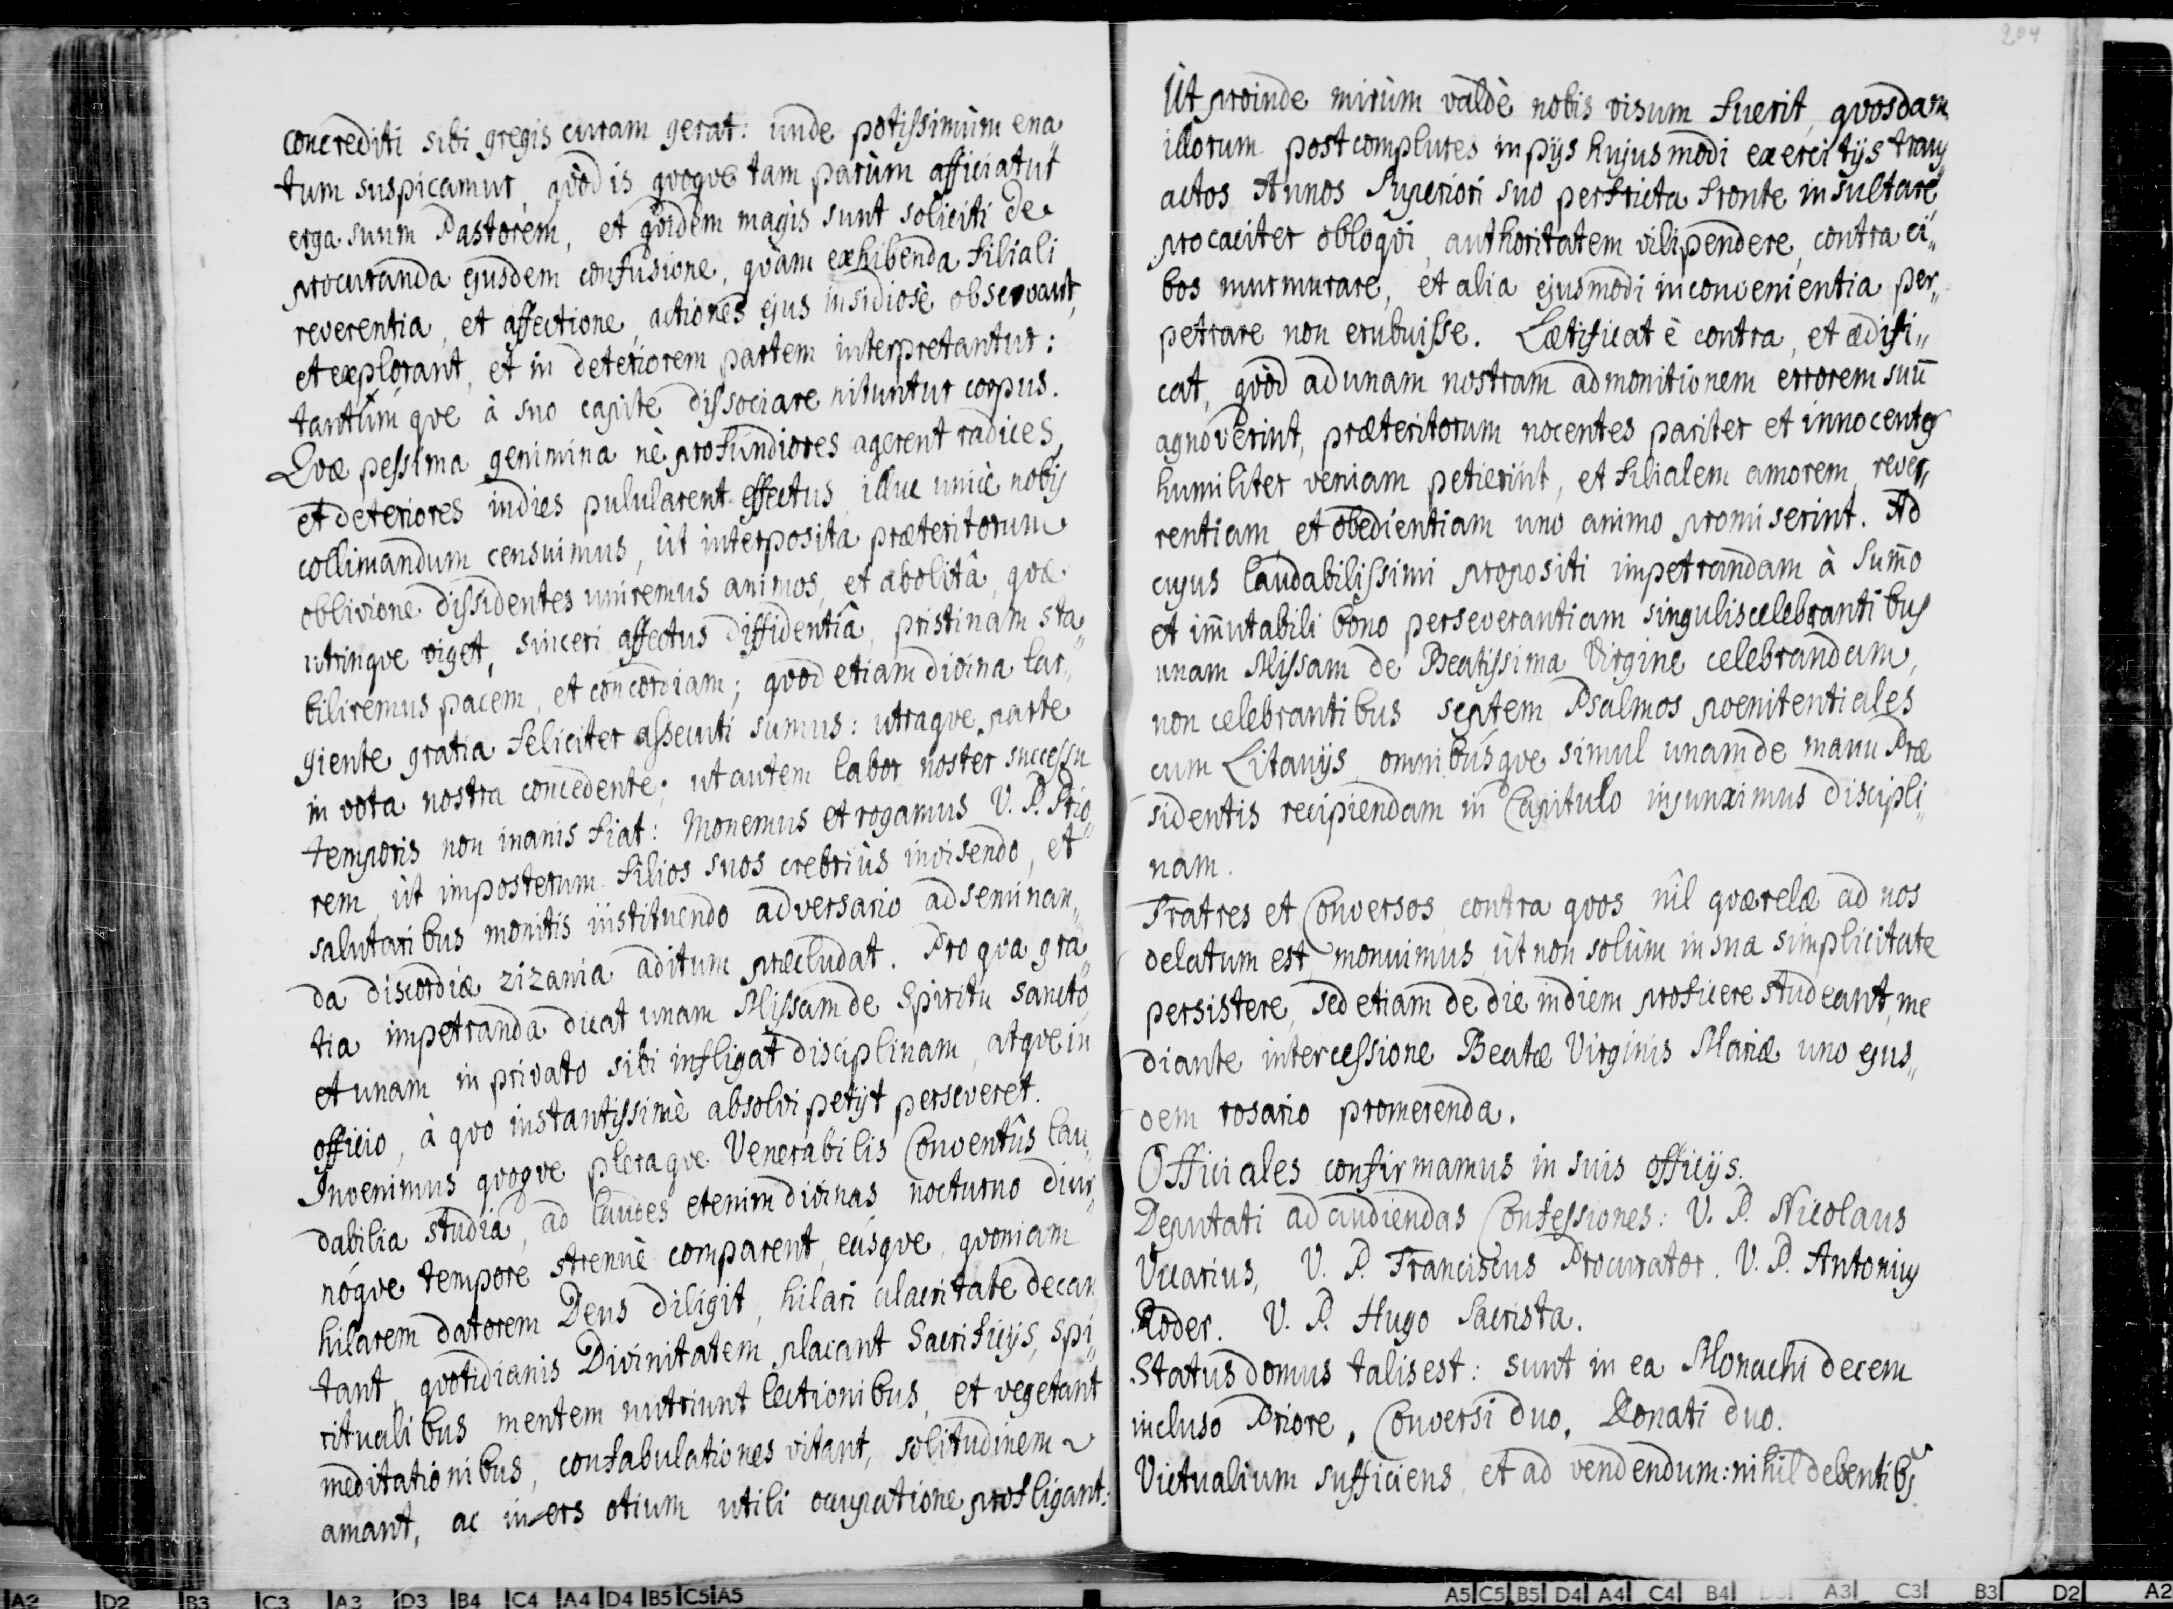 concrediti sibi gregis curam gerat: unde potissimùm ena„
tum suspicamur, qvòd is qvoqve tam parùm afficiatur
erga suum Pastorem, et qvidem magis sunt soliciti de
procuranda ejusdem confusione, qvàm exhibenda filiali
reverentia, et affectione, actiones ejus insidiosè observant,
et explorant, et in deteriorem partem interpretantur:
tantùmqve à suo capite dissociare nituntur corpus.
Qvæ pessima genimina nè profundiores agerent radices,
et deteriores indies pulularent effectus, illuc unicè nobis
collimandum censuimus, ùt interposita præteritorum
oblivione dissidentes uniremus animos, et abolitâ, qvæ
utrinqve viget, sinceri affectus diffidentiâ, pristinam sta„
biliremus pacem, et concordiam; qvod etiam divina lar„
giente gratia feliciter assecuti sumus: utraqve parte
in vota nostra concedente; ut autem labor noster successu
temporis non inanis fiat: Monemus et rogamus V. P. Prio„
rem, ùt imposterum filios suos crebriùs invisendo, et
salutaribus monitis instituendo adversario ad seminan„
da discordiæ zizania aditum præcludat. Pro qva gra„
tia impetranda dicat unam Missam de Spiritu Sancto,
et unam in privato sibi infligat disciplinam, atqve in
officio, à qvo instantissimè absolvi petijt perseveret.
Invenimus qvoqve pleraqve Venerabilis Conventûs lau„
dabilia studia, ad laudes etenim divinas nocturno diur„
nóqve tempore strenuè comparent, eásqve, qvoniam
hilarem datorem Deus diligit, hilari alacritate decan
tant, qvotidianis Divinitatem placant Sacrificijs, spi„
ritualibus mentem nutriunt lectionibus, et vegetant
meditationibus, confabulationes vitant, solitudinem
amant, ac iners otium utili occupatione profligant:
204
Ùt proinde mirùm valdè nobis visum fuerit, qvosdam
illorum post complures in pijs hujusmodi exercitijs trans
actos Annos Superiori suo perfricta fronte insultare,
procaciter obloqvi, authoritatem vilipendere, contra ci„
bos murmurare, et alia ejusmodi inconvenientia per„
petrare non erubuisse. Lætificat è contra, et ædifi„
cat, qvòd ad unam nostram admonitionem errorem suū
agnoverint, præteritorum nocentes pariter et innocentes
humiliter veniam petierint, et filialem amorem, reve„
rentiam, et obedientiam uno animo promiserint. Ad
cujus laudabilissimi propositi impetrandam à Sum̄o
et im̄utabili bono perseverantiam singulis celebrantibus
unam Missam de Beatissima Virgine celebrandam,
non celebrantibus septem Psalmos pœnitentiales
cum Litanijs, omnibúsqve simul unam de manu Præ
sidentis recipiendam in Capitulo injunximus discipli„
nam.
Fratres et Conversos, contra qvos nîl qværelæ ad nos
delatum est, monuimus, ùt non solùm in sua simplicitate
persistere, sed etiam de die in diem proficere studeant, me
diante intercessione Beatæ Virginis Mariæ uno ejus„
dem rosario promerenda.
Officiales confirmamus in suis officijs.
Deputati ad audiendas Confessiones: V. P. Nicolaus
Vicarius, V. P. Franciscus Procurator. V. P. Antonius
Roder. V. P. Hugo Sacrista.
Status domus talis est: sunt in ea Monachi decem
incluso Priore, Conversi duo, Donati duo.
Victualium sufficiens, et ad vendendum: nihil debentibs
A2 D2 B3 C3 A3 D3 B4 C4 A4 D4 B5 C5 A5
A5 C5 B5 D4 A4 C4 B4 D3 A3 C3 B3 D2 A2